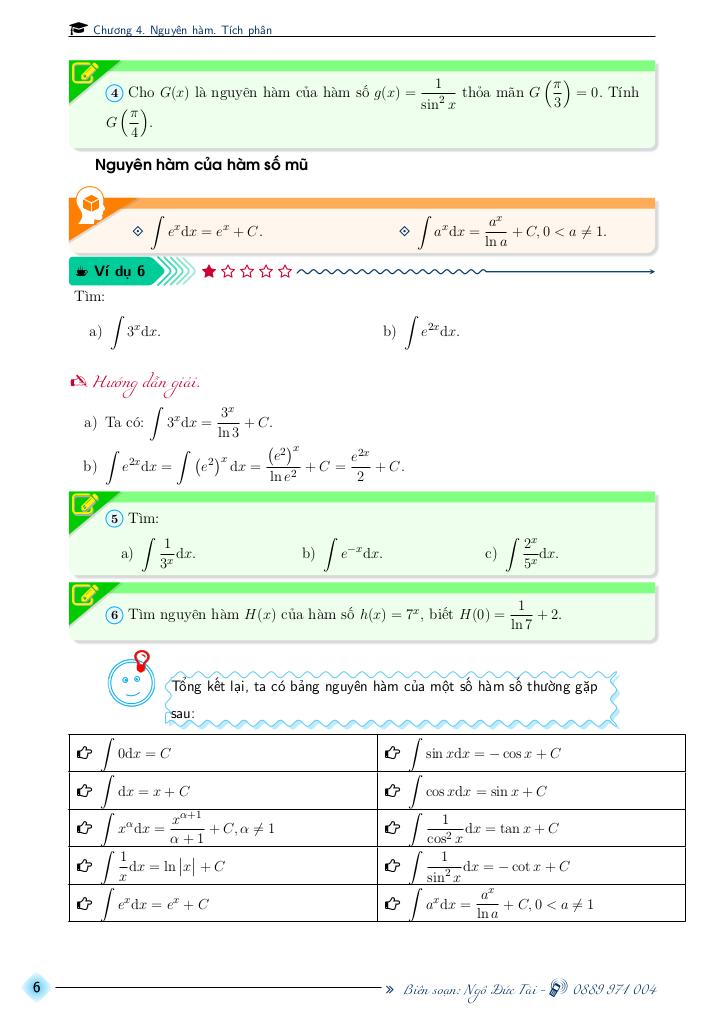 Chương 4. Nguyên hàm. Tích phân
4 Cho G(x) là nguyên hàm của hàm số g(x) = 1/sin² x thỏa mãn G(π/3) = 0. Tính
G(π/4).
Nguyên hàm của hàm số mũ
∫ eˣdx = eˣ + C. ∫ aˣdx = aˣ/ln a + C, 0 < a ≠ 1.
Ví dụ 6
Tìm:
a) ∫ 3ˣdx. b) ∫ e²ˣdx.
Hướng dẫn giải.
a) Ta có: ∫ 3ˣdx = 3ˣ/ln 3 + C.
b) ∫ e²ˣdx = ∫ (e²)ˣ dx = (e²)ˣ/ln e² + C = e²ˣ/2 + C.
5 Tìm:
a) ∫ 1/3ˣ dx. b) ∫ e⁻ˣdx. c) ∫ 2ˣ/5ˣ dx.
6 Tìm nguyên hàm H(x) của hàm số h(x) = 7ˣ, biết H(0) = 1/ln 7 + 2.
Tổng kết lại, ta có bảng nguyên hàm của một số hàm số thường gặp
sau:
∫ 0dx = C ∫ sin xdx = − cos x + C
∫ dx = x + C ∫ cos xdx = sin x + C
∫ x^α dx = x^(α+1)/(α + 1) + C, α ≠ 1 ∫ 1/cos² x dx = tan x + C
∫ 1/x dx = ln |x| + C ∫ 1/sin² x dx = − cot x + C
∫ eˣdx = eˣ + C ∫ aˣdx = aˣ/ln a + C, 0 < a ≠ 1
6 Biên soạn: Ngô Đức Tài - 0889 971 004